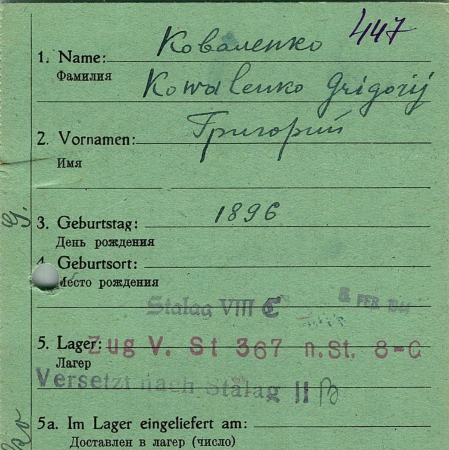 447
Коваленко
1. Name: Kowalenko Grigorij
Фамилия
Григорий
2. Vornamen:
Имя
3. Geburtstag: 1896
День рождения
4. Geburtsort:
Место рождения
Stalag VIII C 8 FEB. 194
5. Lager: Zug V. St 367 n.St. 8-C
Лагер
Versetzt nach Stalag II B
5a. Im Lager eingeliefert am:
Доставлен в лагер (число)